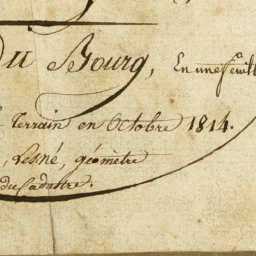 Du Bourg, En une feuill
Terrain en Octobre 1814.
, Lesné, géomètre
du Cadastre.